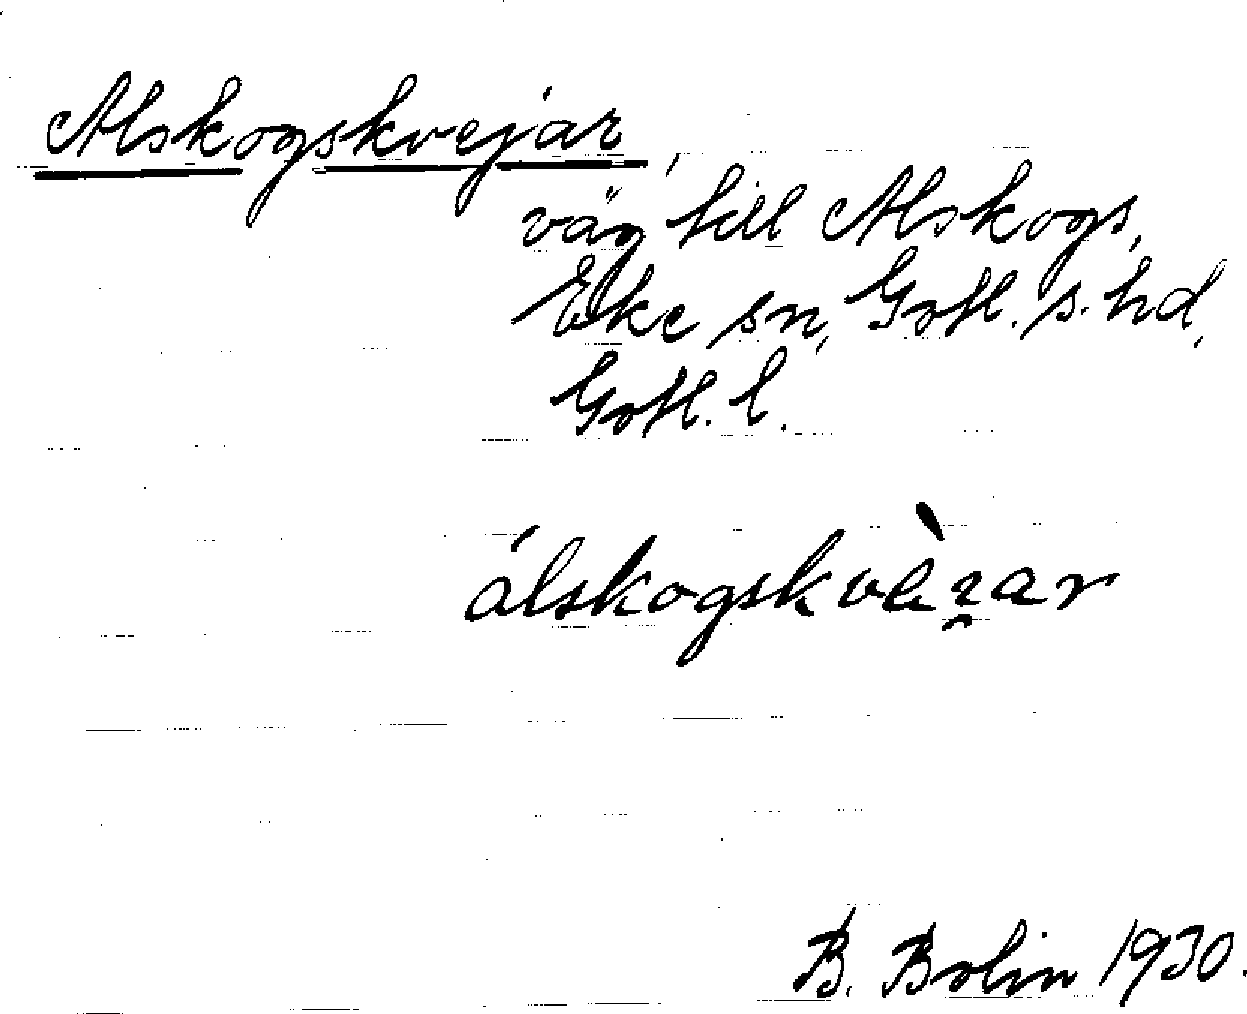 Alskogskvejar,
väg till Alskogs,
Eke sn, Gotl. s. hd,
Gotl. l.
álskogskvàɪ̯ar
B. Bolin 1930.